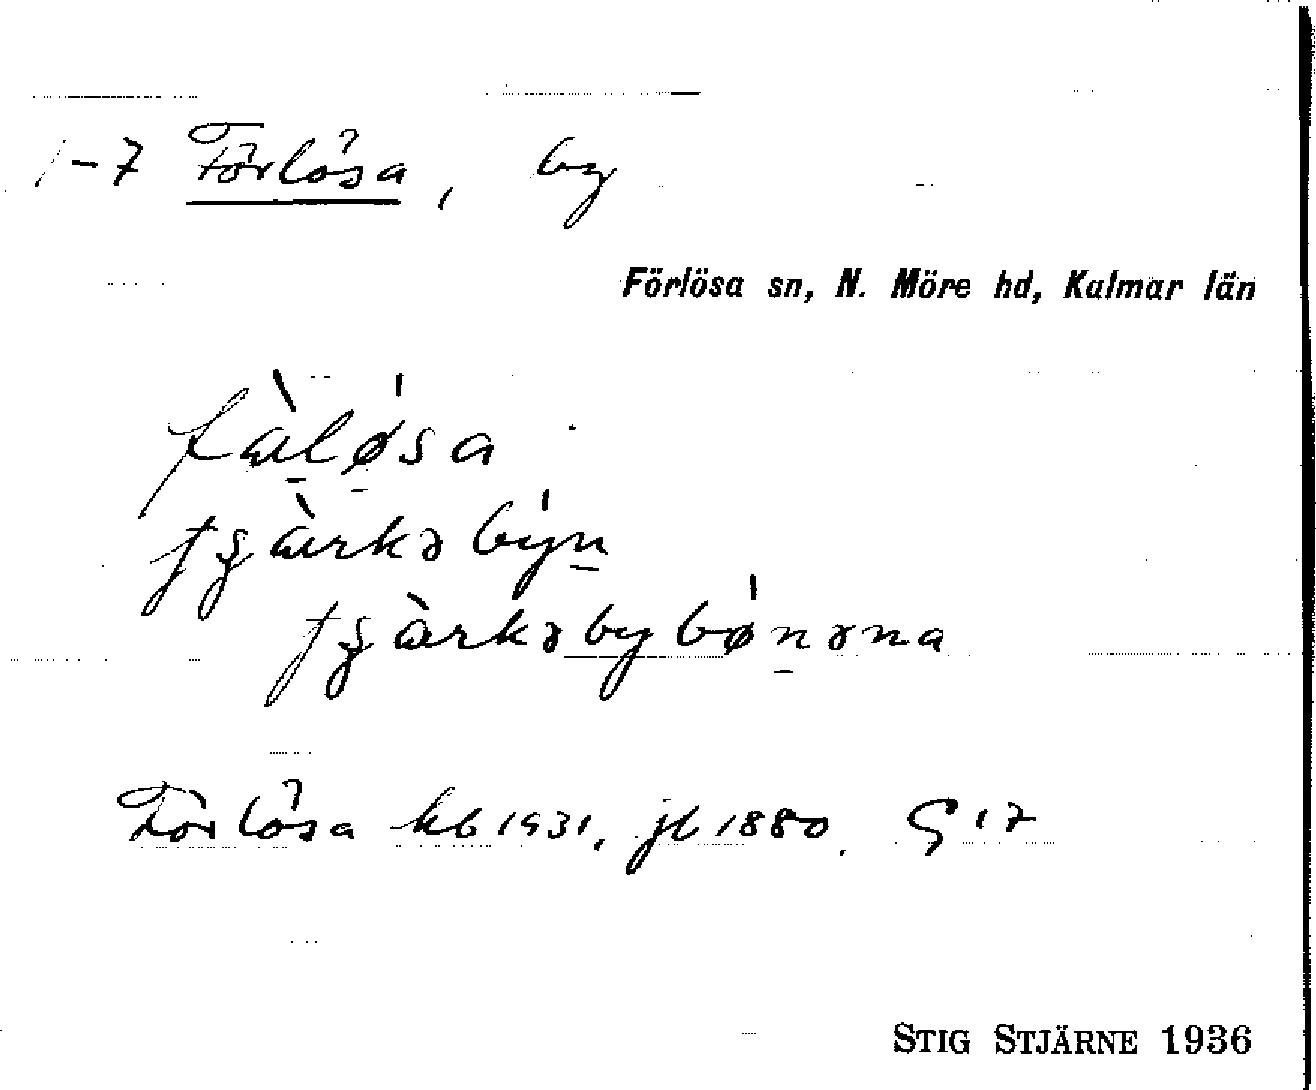 1-7 Förlösa, by
Förlösa sn, N. Möre hd, Kalmar län
fæ̀lǿsa
ʃʒæ̀rkəbýn
ʃʒæ̀rkəbybǿnəna
Förlösa kb 1931, jb 1880. G 17
STIG STJÄRNE 1936